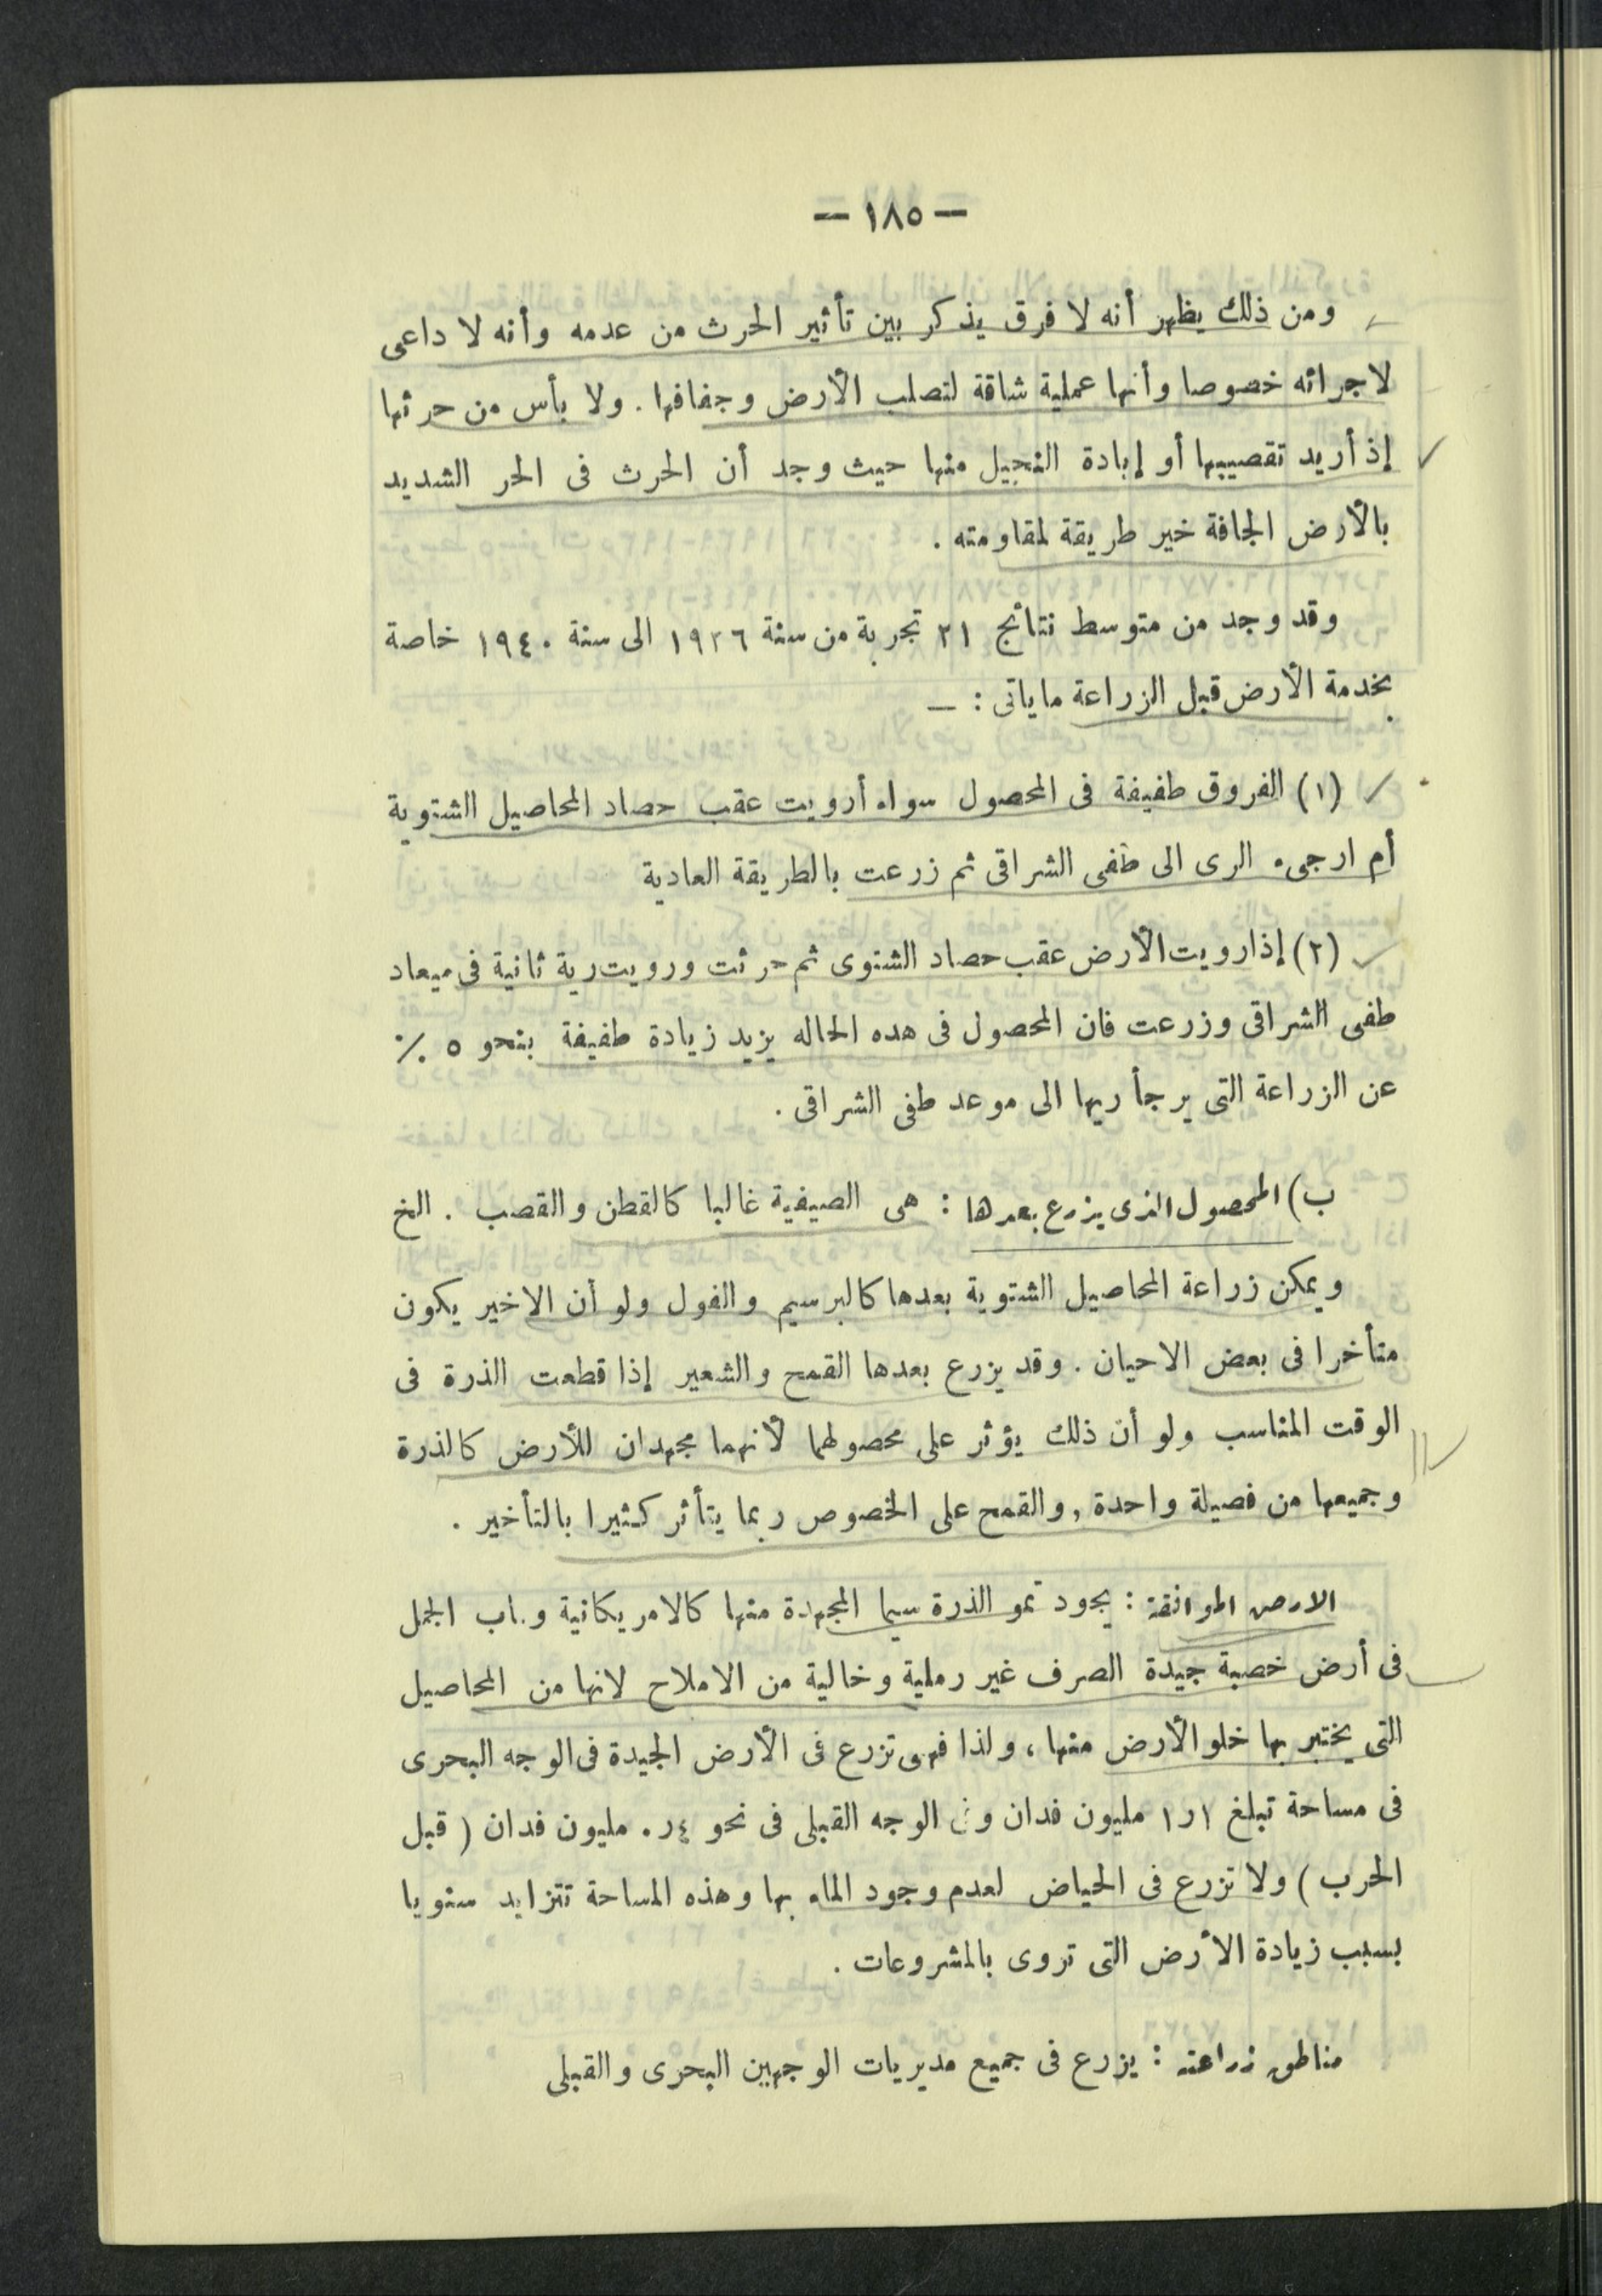 — ١٨٥ —
ومن ذلك يظهر أنه لا فرق يذكر بين تأثير الحرث من عدمه وأنه لا داعى
لاجرائه خصوصا وأنها عملية شاقة لتصلب الأرض وجفافها . ولا بأس من حرثها
إذ أريد تقصيبها أو إبادة النجيل منها حيث وجد أن الحرث فى الحر الشديد
بالأرض الجافة خير طريقة لمقاومته .
وقد وجد من متوسط نتائج ٢١ تجربة من سنة ١٩٢٦ الى سنة ١٩٤٠ خاصة
بخدمة الأرض قبل الزراعة ماياتى : —
(١) الفروق طفيفة فى المحصول سواء أرويت عقب حصاد المحاصيل الشتوية
أم ارجىء الرى الى طفى الشراقى ثم زرعت بالطريقة العادية
(٢) إذا رويت الأرض عقب حصاد الشتوى ثم حرثت ورويت رية ثانية فى ميعاد
طفى الشراقى وزرعت فان المحصول فى هده الحاله يزيد زيادة طفيفة بنحو ٥ ٪
عن الزراعة التى يرجأ ريها الى موعد طفى الشراقى .
ب) المحصول الذى يزرع بعدها : هى الصيفية غالبا كالقطن والقصب . الخ
ويمكن زراعة المحاصيل الشتوية بعدها كالبرسيم والفول ولو أن الاخير يكون
متأخرا فى بعض الاحيان . وقد يزرع بعدها القمح والشعير إذا قطعت الذرة فى
الوقت المناسب ولو أن ذلك يؤثر على محصولهما لأنهما مجهدان للأرض كالذرة
وجميعها من فصيلة واحدة , والقمح على الخصوص ربما يتأثر كثيرا بالتأخير .
الارض الموافقة : يجود نمو الذرة سيما المجهدة منها كالامريكانية وناب الجمل
فى أرض خصبة جيدة الصرف غير رملية وخالية من الاملاح لانها من المحاصيل
التى يختبر بها خلو الأرض منها ، ولذا فهى تزرع فى الأرض الجيدة فى الوجه البحرى
فى مساحة تبلغ ١ر١ مليون فدان وفى الوجه القبلى فى نحو ٤ر٠ مليون فدان ( قبل
الحرب ) ولا تزرع فى الحياض لعدم وجود الماء بها وهذه المساحة تتزايد سنويا
بسبب زيادة الأرض التى تروى بالمشروعات .
مناطق زراعته : يزرع فى جميع مديريات الوجهين البحرى والقبلى